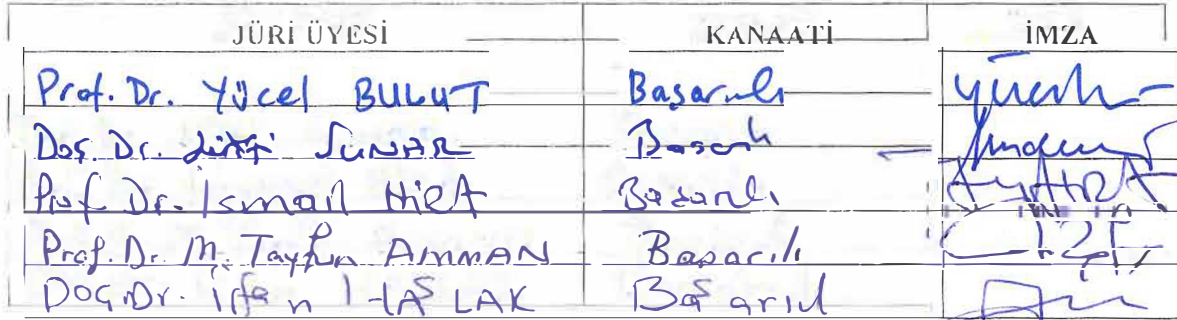 JÜRİ ÜYESİ KANAATİ İMZA
Prof. Dr. Yücel BULUT Başarılı
Doç. Dr. Lütfi SUNAR Başarılı
Prof. Dr. İsmail HİRA Başarılı
Prof. Dr. M. Tayfun AMMAN Başarılı
Doç. Dr. İrfan HAŞLAK Başarılı